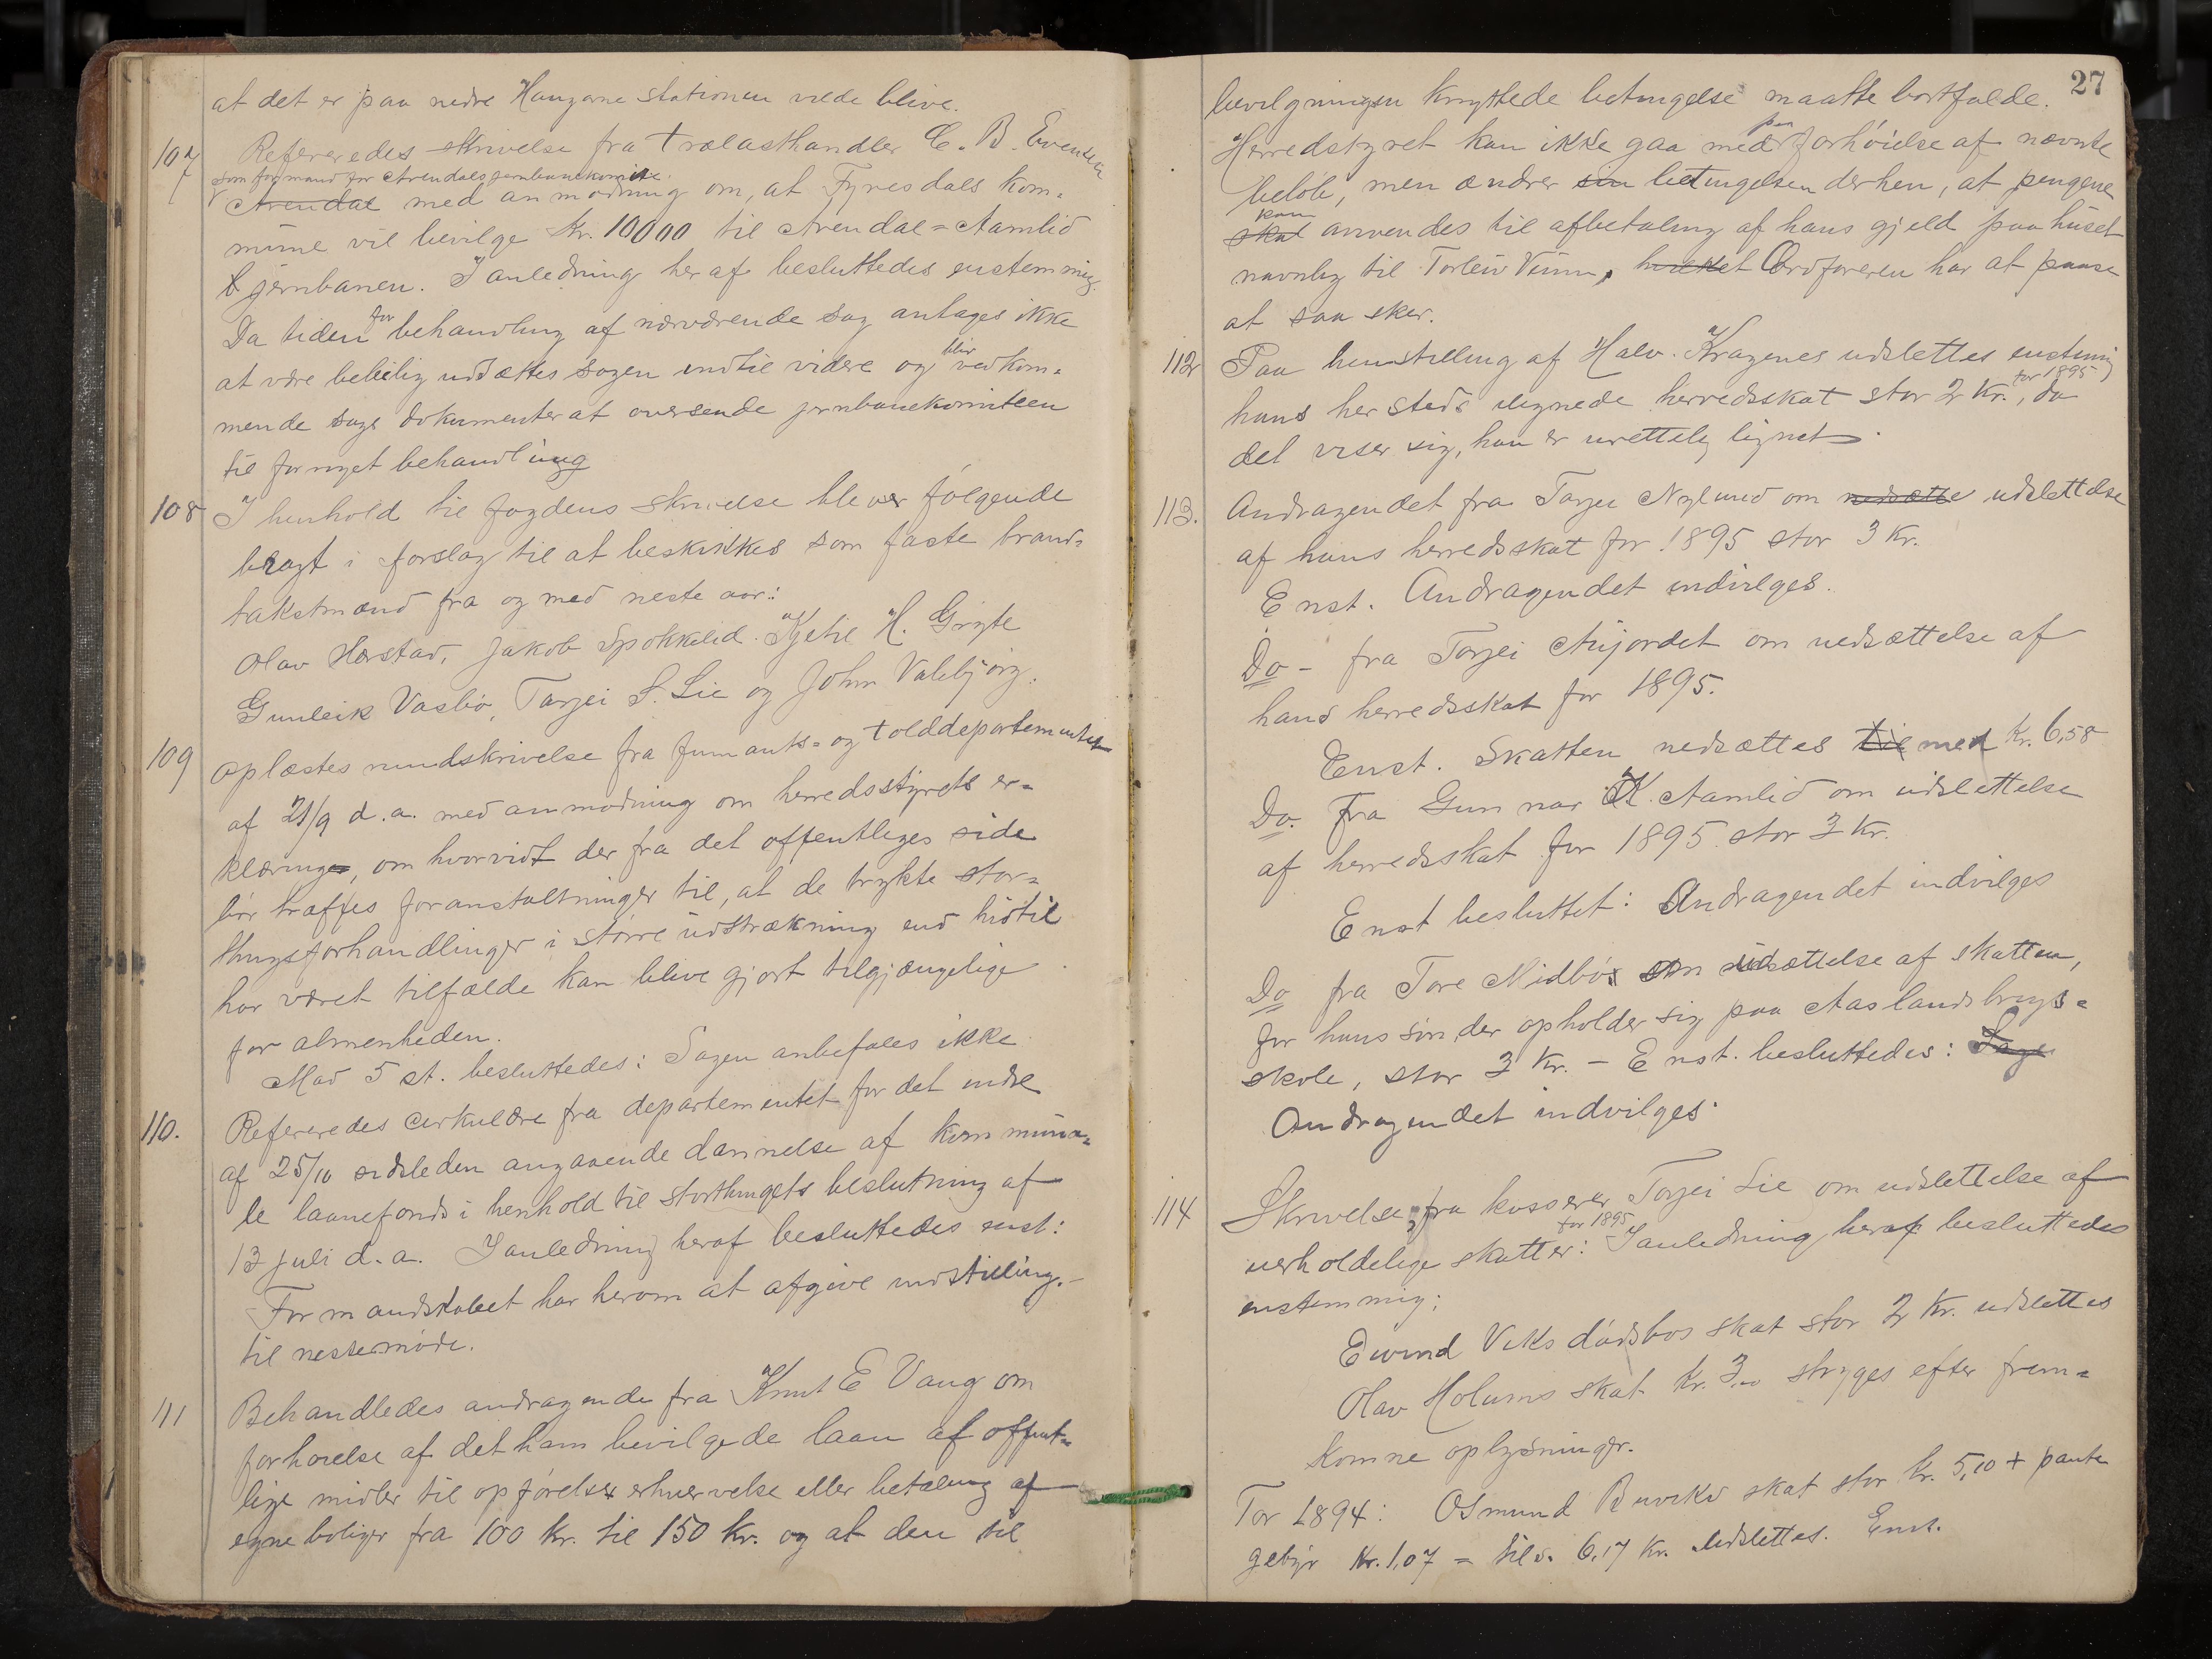 at det er paa nedre Haugane stationen vilde blive.
107 Refereredes skrivelse fra trælasthandler C. B. Evensen
som formand for Arendals jernbanekomite
Arendal med anmodning om, at Fyresdals kom-
mune vil bevilge Kr. 10000 til Arendal=Aamlid
jernbanen. I anledning heraf besluttedes enstemmig.
Da tiden for behandling af nærværende sag antages ikke
at være beleilig udsættes sagen indtil videre og blir vedkom=
mende sags dokumenter at oversende jernbanekomiteen
til fornyet behandling
108 I henhold til fogdens skrivelse blever følgende
bragt i forslag til at beskikkes som faste brand=
takstmænd fra og med neste aar:
Olav Hærstad, Jakob Spokkelid. Kjetil H. Gryte
Gunleik Vasbø, Tarjei S. Lie og John Valebjørg.
109 Oplæstes rundskrivelse fra finants= og tolddepartementet
af 21/9 d.a. med anmodning om herredsstyrets er=
klæring, om hvorvidt der fra det offentliges side
bør træffes foranstaltninger til, at de trykte stor=
thingsforhandlinger i større udstrækning end hidtil
har været tilfælde kan blive gjort tilgjængelige
for almenheden.
Mod 5 st. besluttedes: Sagen anbefales ikke
110. Refereredes cirkulære fra departementet for det indre
af 25/10 sidsleden angaaende dannelse af kommuna=
le laanefonds i henhold til storthingets beslutning af
13 juli d.a. I anledning heraf besluttedes enst:
Formandskabet har herom at afgive indstilling.-
til neste møde.
111 Behandledes andragende fra Knut E Vaug om
forhøielse af det ham bevilgede laan af offent=
lige midler til opførelse erhvervelse eller betaling af
egne boliger fra 100 kr. til 150 kr. og at den til
27
bevilgningen knyttede betingelse maatte bortfalde.
Herredstyret kan ikke gaa med paa forhøielse af nævnte
beløb, men ændrer sin betingelsen derhen, at pengene
kan
skal anvendes til afbetaling af hans gjeld paa huset
navnlig til Torleiv Vinn, hvilket Ordføreren har at paase
at saa sker.
112 Paa henstilling af Halv. Kragenes udslettes enstemig
hans hersteds ilignede herredsskat stor 2 Kr. for 1895, da
det viser sig, han er urettelig lignet.
113. Andragendet fra Tarjei Nylund om nedsætte udslettelse
af hans herredsskat for 1895 stor 3 Kr.
Enst. Andragendet indvilges.
Do - fra Torjei Aujordet om nedsættelse af
hans herredsskat for 1895.
Enst. Skatten nedsættes til med Kr. 6,58
Do. Fra Gunnar K. Aamlid om udslettelse
af herredsskat for 1895 stor 3 Kr.
Enst besluttet: Andragendet indvilges
Do fra Tore Midbø om udsættelse af skatten,
for hans søn, der opholder sig paa Aaslandsbrugs=
skole, stor 3 Kr. - Enst. besluttedes: Sage
Andragendet indvilges.
114 Skrivelse fra kasserer Torjei Lie om udslettelse af
uerholdelige skatter for 1895: I anledning heraf besluttedes
enstemmig:
Eivind Viks dødsbos skat stor 2 Kr. udslettes
Olav Holums skat Kr. 3.00 stryges efter frem=
komne oplysninger.
For 1894: Osmund Buviks skat stor Kr. 5,10 + pante
gebyr Kr. 1,07 = tils. 6,17 Kr. udslettes. Enst.